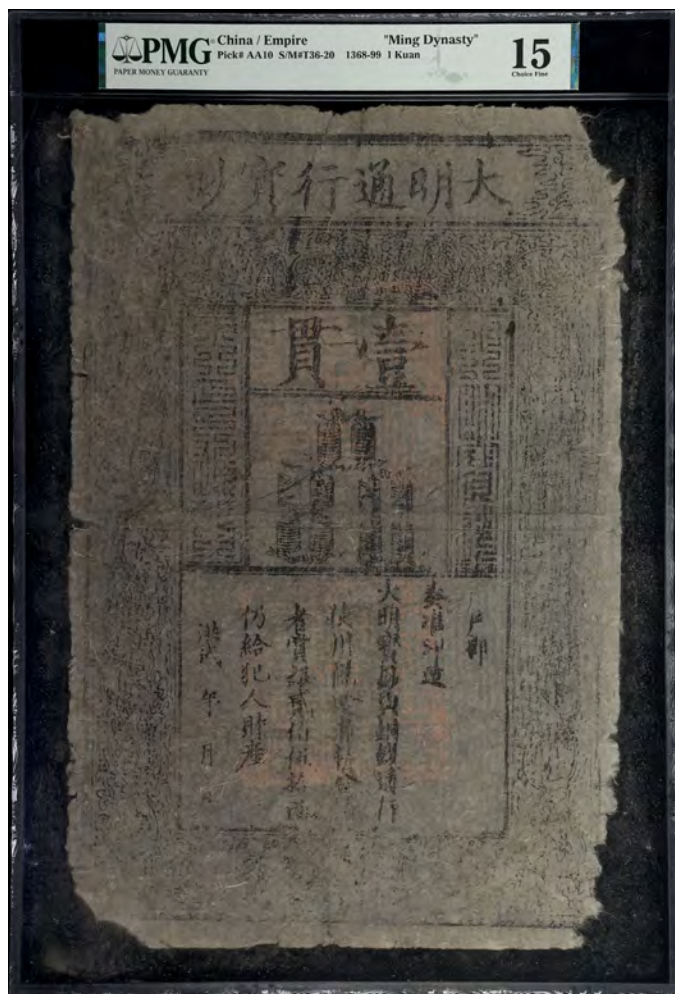 PMG
PAPER MONEY GUARANTY
China / Empire "Ming Dynasty"
Pick# AA10 S/M#T36-20 1368-99 1 Kuan
15
Choice Fine
大明通行寶鈔
壹貫
戶部
奏准印造
大明寶鈔與銅錢通行
使用偽造者斬告
者賞銀貳伯伍拾兩
仍給犯人財產
洪武 年 月